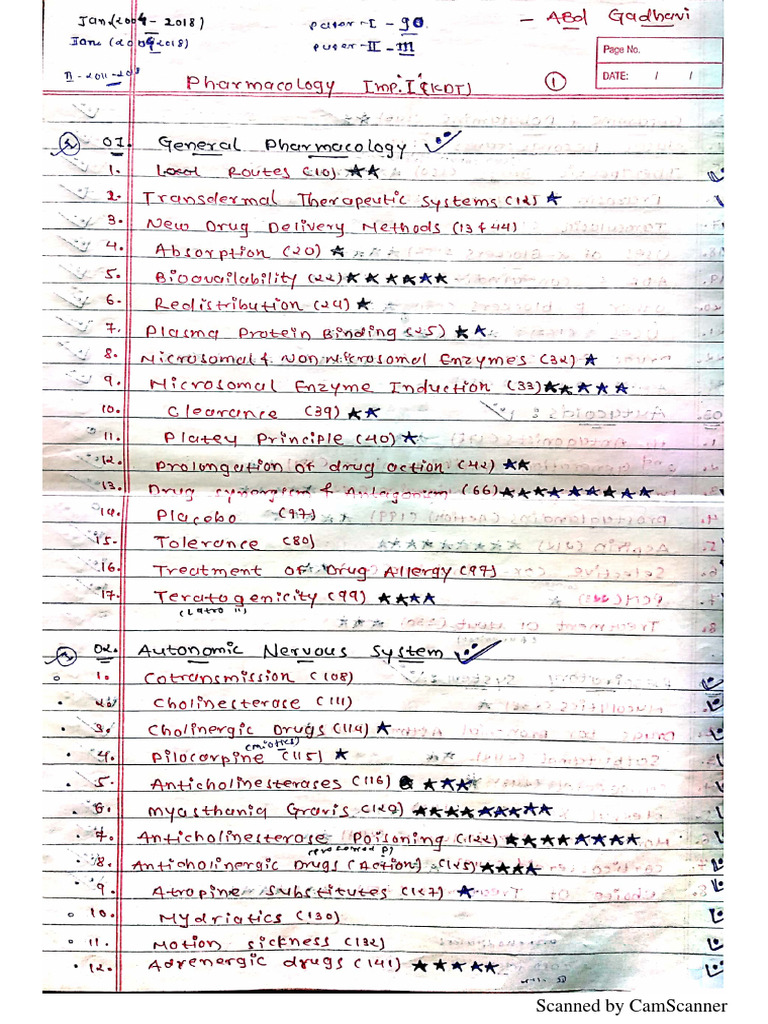 Jan (2004 - 2018)
Paper-I - 90
- ABD Gadhavi
Jan (2009 2018)
Paper-II - m
Page No.
DATE: / /
II - 2011 - 2018
Pharmacology Imp. I (KDT) 1
01. General Pharmacology
1. Local Routes (10) ★★
2. Transdermal Therapeutic Systems (12) ★
3. New Drug Delivery Methods (13 & 44)
4. Absorption (20) ★
5. Bioavailability (22) ★★★★★★
6. Redistribution (24) ★
7. Plasma Protein Binding (25) ★★
8. Microsomal & Non Microsomal Enzymes (32) ★
9. Microsomal Enzyme Induction (33) ★★★★★
10. Clearance (39) ★★
11. Platey Principle (40) ★
12. Prolongation of drug action (42) ★★
13. Drug synergism & Antagonism (66) ★★★★★★★★★
14. Placebo (77)
15. Tolerance (80)
16. Treatment of Drug Allergy (97)
17. Teratogenicity (99) ★★★★
02. Autonomic Nervous System
1. Cotransmission (108)
2. Cholinesterase (111)
3. Cholinergic Drugs (114) ★
(miotics)
4. Pilocarpine (115) ★
5. Anticholinesterases (116) ★★★
6. Myasthania Gravis (120) ★★★★★★★★
7. Anticholinesterase Poisoning (122) ★★★★★★★★
8. Anticholinergic Drugs (Action) (125) ★★★★
9. Atropine Substitutes (127) ★
10. Mydriatics (130)
11. Motion sickness (132)
12. Adrenergic drugs (141) ★★★★★
Scanned by CamScanner